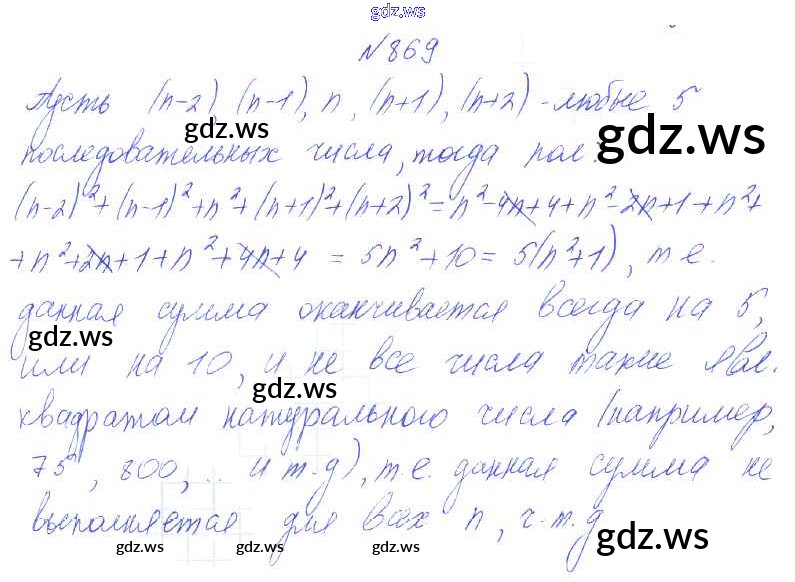 gdz.ws
№869
Пусть (n-2), (n-1), n, (n+1), (n+2) - любые 5
gdz.ws
gdz.ws
последовательных числа, тогда пол:
(n-2)²+(n-1)²+n²+(n+1)²+(n+2)²=n²-4n+4+n²-2n+1+n²+
+n²+2n+1+n²+4n+4 = 5n²+10= 5(n²+1), т.е.
данная сумма оканчивается всегда на 5,
gdz.ws
или на 10, и не все числа такие явл.
gdz.ws
квадратом натурального числа (например,
75, 800, .. и т.д), т.е. данная сумма не
gdz.ws
выполняется для всех n, ч.т.д
gdz.ws gdz.ws gdz.ws
gdz.ws